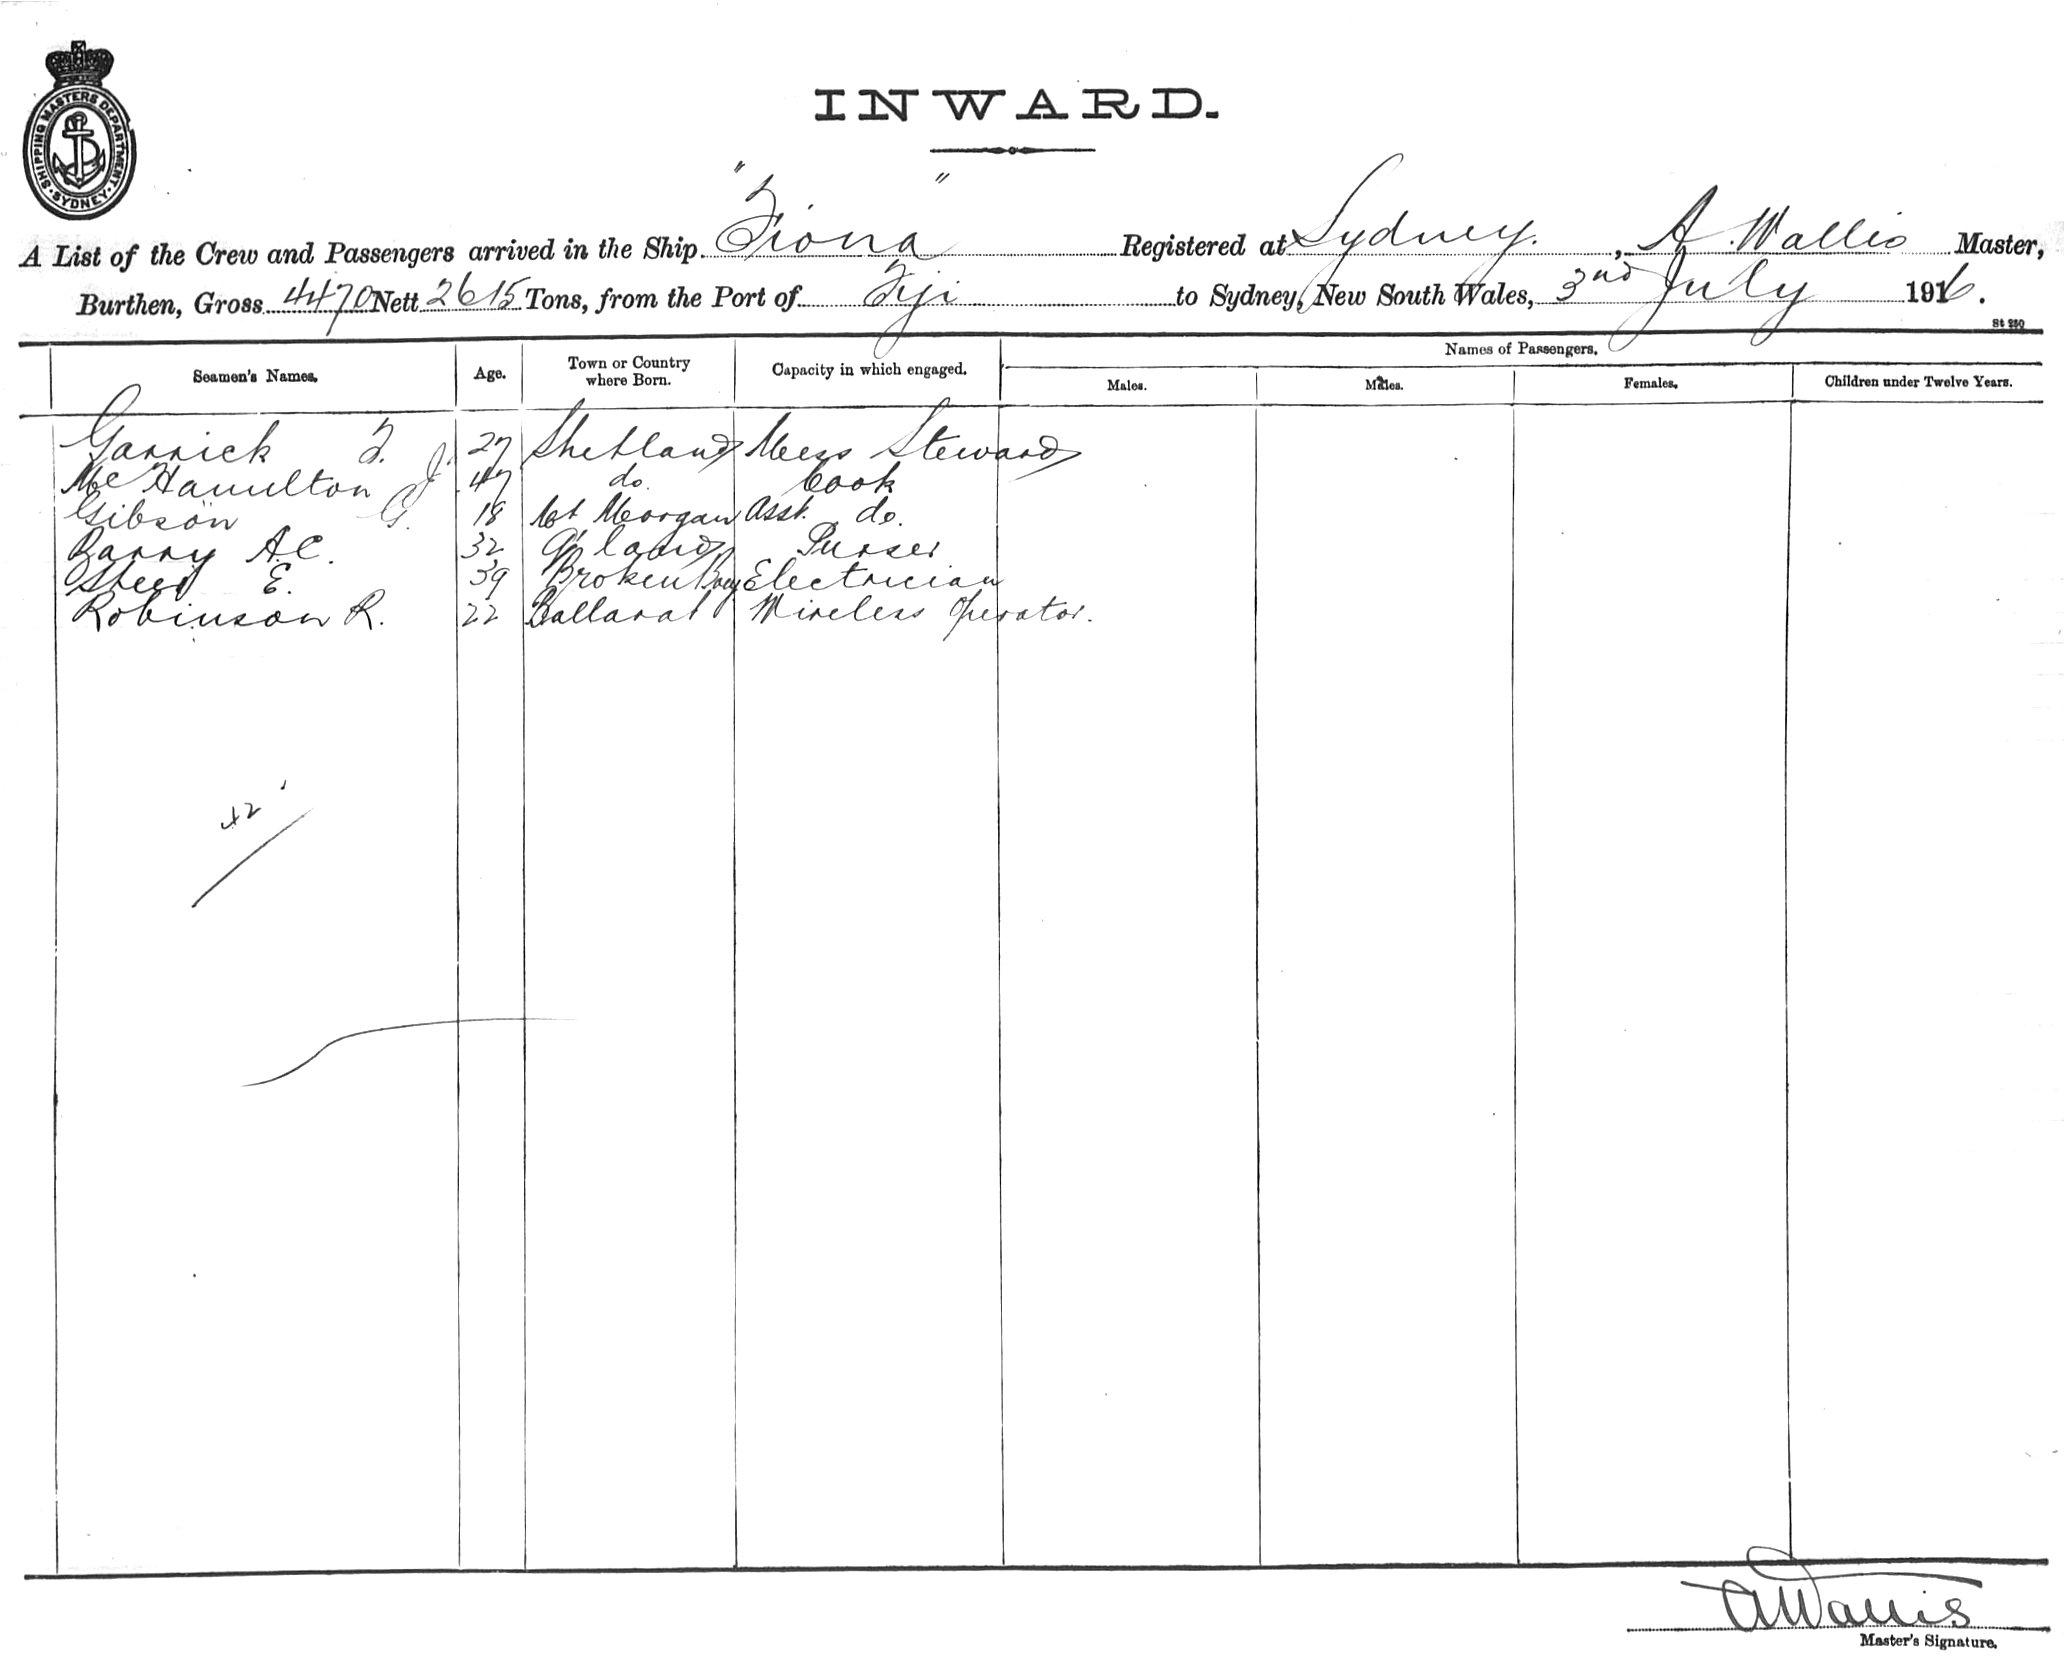 SHIPPING MASTERS DEPARTMENT
SYDNEY
INWARD.
A List of the Crew and Passengers arrived in the Ship "Fiona" Registered at Sydney. , A. Wallis Master,
Burthen, Gross 4470 Nett 2615 Tons, from the Port of Fiji to Sydney, New South Wales, 3nd July 1916.
St 250
Seamen's Names. Age. Town or Country where Born. Capacity in which engaged. Names of Passengers.
Males. Males. Females. Children under Twelve Years.
Garrick F. 27 Shetland Mess Steward
McHamilton J. 47 do. Cook
Gibson G. 18 Mt Morgan Asst. do.
Barry A.C. 32 Q'land Purser
Steed E. 39 Broken Bay Electrician
Robinson R. 22 Ballarat Wireless Operator.
42
A Wallis
Master's Signature.